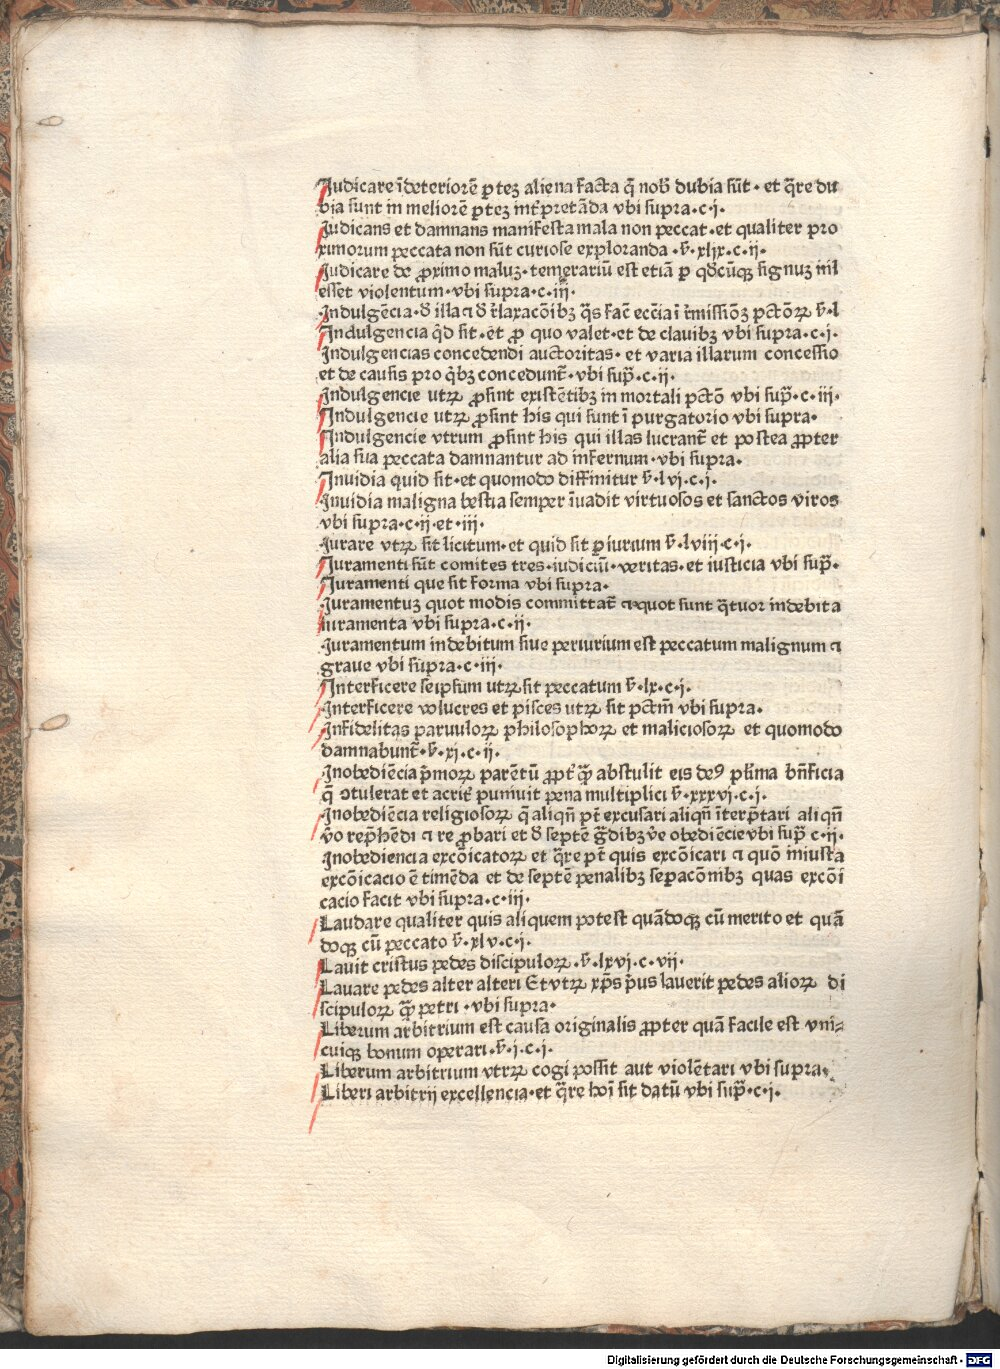 Judicare ĩ deteriorē ꝑtez aliena facta q̄ nob̄ dubia sūt · et q̄re du
bia sunt in meliorē ꝑtez int̄pretāda vbi supra·c·i·
Judicans et damnans manifesta mala non peccat·et qualiter pro
ximorum peccata non sūt curiose exploranda ·§·xlix·c·ii·
Judicare de ꝓximo maluʒ·temerariū est etiā ꝑ qđcūqʒ signuʒ nisi
esset violentum·vbi supra·c·iii·
Indulgēcia·đ illa ⁊ đ r̄laxacōibʒ q̄s fac̄ ecc̄ia ĩ r̄missiōʒ pctōꝝ §·l
Indulgencia qđ sit·et ꝓ quo valet·et de clavibʒ vbi supra·c·i·
Indulgencias concedendi auctoritas· et varia illarum concessio
et de causis pro q̄bʒ concedunt̄·vbi sup̄·c·ii·
Indulgencie utꝝ ꝓsint existētibʒ in mortali pctō vbi sup̄·c·iii·
Indulgencie utꝝ ꝓsint his qui sunt ĩ purgatorio vbi supra·
Indulgencie vtrum ꝓsint his qui illas lucrant̄ et postea ꝓpter
alia sua peccata damnantur ad infernum·vbi supra·
Invidia quid sit·et quomodo diffinitur §·lvi·c·i·
Invidia maligna bestia semper ĩuadit virtuosos et sanctos viros
vbi supra·c·ii·et·iii·
Iurare vtꝝ sit licitum·et quid sit ꝑiurium §·lviii·c·i·
Iuramenti sūt comites tres·iudiciū·veritas·et iusticia vbi sup̄·
Iuramenti que sit forma vbi supra·
Iuramentuʒ quot modis committat̄ ⁊ quot sunt q̄tuor indebita
iuramenta vbi supra·c·ii·
Iuramentum indebitum siue periurium est peccatum malignum ⁊
graue vbi supra·c·iii·
Interficere seipsum utꝝ sit peccatum §·lx·c·i·
Interficere volucres et pisces utꝝ sit pctm̄ vbi supra·
Infidelitas paruuloꝝ philosophoꝝ et malicioso​ꝝ et quomodo
damnabunt̄·§·xi·c·ii·
Inobediēcia p̄moꝝ parentū ꝓpt̄ q̄ꝫ abstulit eis deꝰ pl̄ima bn̄ficia
q̄ ɔtulerat et acrit̄ puniuit pena multiplici §·xxxvi·c·i·
Inobediēcia religiosoꝝ q̄ aliqn̄ pt̄ excusari aliqn̄ ĩterp̄tari aliqn̄
v̄o rep̄hēdi ⁊ reꝓbari et đ septē g̃dibʒ v̄e obediēcie vbi sup̄ c·ii·
Inobediencia excōicatoꝝ et q̄re pt̄ quis excōicari ⁊ quō iniusta
excōicacio ē timēda et de septē penalibʒ sepacōnibʒ quas excōi
cacio facit vbi supra·c·iii·
Laudare qualiter quis aliquem potest quādoqʒ cū merito et quā
doqʒ cū peccato §·xlv·c·i·
Lavit cristus pedes discipuloꝝ·§·lxvi·c·vii·
Lavare pedes alter alteri Et vtꝝ xp̄s p̄us lauerit pedes alioꝝ di
scipuloꝝ q̄ꝫ petri ·vbi supra·
Liberum arbitrium est causa originalis ꝓpter quā facile est vni⸗
cuiqʒ bonum operari·§·i·c·i·
Liberum arbitrium vtꝝ cogi possit aut violētari vbi supra·
Liberi arbitrij excellencia·et q̄re hoī sit datū vbi sup̄·c·i·
Digitalisierung gefördert durch die Deutsche Forschungsgemeinschaft - DFG